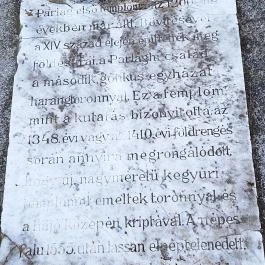 Parlag első temploma az 1200-as
években már állt. Bővítésével
a XIV. század elején építették meg
földesurai a Parlaghi család
a második, gótikus egyházat
haranqtoronnyal. Ez a templom,
mint a kutatás bizonyította, az
1348. évi vagy az 1410. évi földrengés
során annyira megrongálódott,
hogy új, nagyméretű kegyúri
templomot emeltek toronnyal és
a hajó közepén kriptával. A népes
falu 1553. után lassan elnéptelenedett.